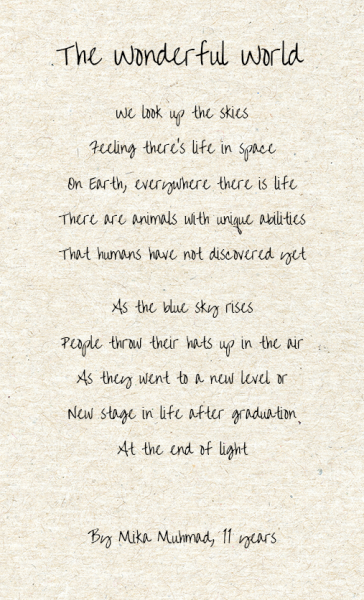 The Wonderful World
We look up the skies
Feeling there's life in space
On Earth, everywhere there is life
There are animals with unique abilities
That humans have not discovered yet
As the blue sky rises
People throw their hats up in the air
As they went to a new level or
New stage in life after graduation
At the end of light
By Mika Muhmad, 11 years